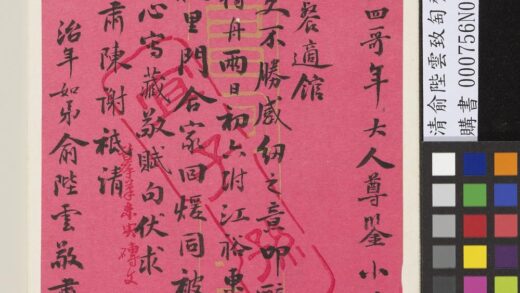 清俞陛雲致匋
購書 000756N0
四哥年大人尊鑒小
餐適館
不勝感紉之意叩
舟兩日初六附江裕東
里門合家回煖同被
心寫藏敬賦句伏求
肅陳謝祗清
治年如弟俞陛雲敬肅